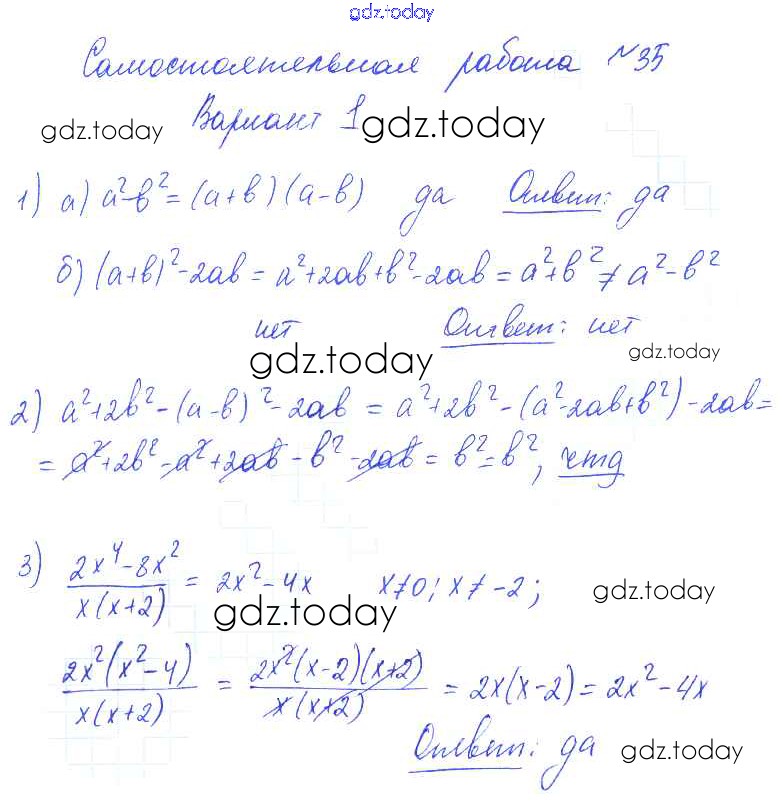 gdz.today
Самостоятельная работа №35
gdz.today Вариант 1 gdz.today
1) а) a²-b² = (a+b)(a-b) да Ответ: да
б) (a+b)²-2ab = a²+2ab+b²-2ab = a²+b² ≠ a²-b²
нет Ответ: нет
gdz.today gdz.today
2) a²+2b²-(a-b)²-2ab = a²+2b²-(a²-2ab+b²)-2ab=
= a²+2b²-a²+2ab-b²-2ab = b²=b², чтд
3) (2x⁴-8x²)/(x(x+2)) = 2x²-4x x≠0; x≠-2;
gdz.today gdz.today
(2x²(x²-4))/(x(x+2)) = (2x²(x-2)(x+2))/(x(x+2)) = 2x(x-2) = 2x²-4x
Ответ: да gdz.today